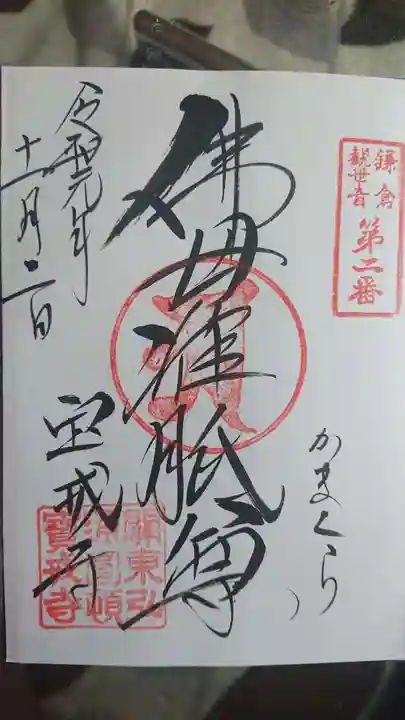 鎌倉
観世音
第二番
かまくら
佛母准胝尊
令和元年
十一月二日
宝戒寺
關東弘
寶戒寺